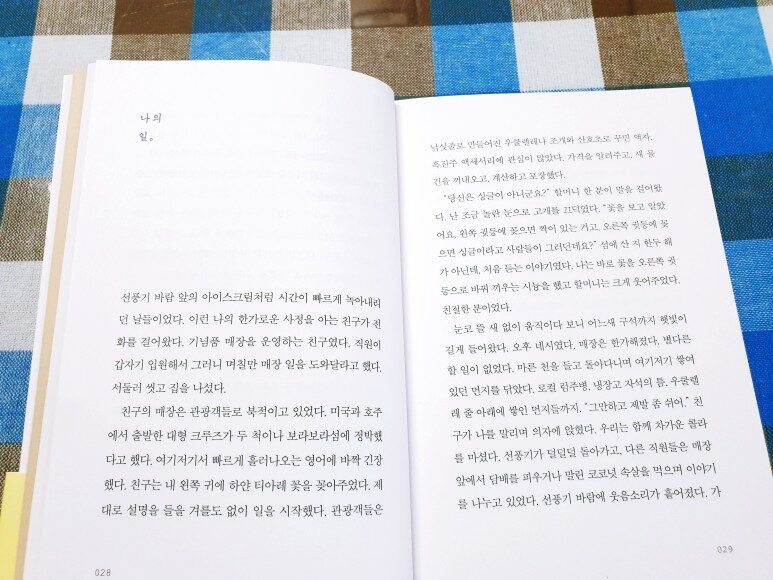 나의
일。
선풍기 바람 앞의 아이스크림처럼 시간이 빠르게 녹아내리
던 날들이었다. 이런 나의 한가로운 사정을 아는 친구가 전
화를 걸어왔다. 기념품 매장을 운영하는 친구였다. 직원이
갑자기 입원해서 그러니 며칠만 매장 일을 도와달라고 했다.
서둘러 씻고 집을 나섰다.
친구의 매장은 관광객들로 북적이고 있었다. 미국과 호주
에서 출발한 대형 크루즈가 두 척이나 보라보라섬에 정박했
다고 했다. 여기저기서 빠르게 흘러나오는 영어에 바짝 긴장
했다. 친구는 내 왼쪽 귀에 하얀 티아레 꽃을 꽂아주었다. 제
대로 설명을 들을 겨를도 없이 일을 시작했다. 관광객들은
028
낚싯줄로 만들어진 우쿨렐레나 조개와 산호초로 꾸민 액자,
흑진주 액세서리에 관심이 많았다. 가격을 알려주고, 새 물
건을 꺼내오고, 계산하고 포장했다.
“당신은 싱글이 아니군요?” 할머니 한 분이 말을 걸어왔
다. 난 조금 놀란 눈으로 고개를 끄덕였다. “꽃을 보고 알았
어요. 왼쪽 귓등에 꽂으면 짝이 있는 거고, 오른쪽 귓등에 꽂
으면 싱글이라고 사람들이 그러던데요?” 섬에 산 지 한두 해
가 아닌데, 처음 듣는 이야기였다. 나는 바로 꽃을 오른쪽 귓
등으로 바꿔 끼우는 시늉을 했고 할머니는 크게 웃어주었다.
친절한 분이었다.
눈코 뜰 새 없이 움직이다 보니 어느새 구석까지 햇빛이
길게 들어왔다. 오후 네시였다. 매장은 한가해졌다. 별다른
할 일이 없었다. 마른 천을 들고 돌아다니며 여기저기 쌓여
있던 먼지를 닦았다. 로컬 럼주병, 냉장고 자석의 틈, 우쿨렐
레 줄 아래에 쌓인 먼지들까지. “그만하고 제발 좀 쉬어.” 친
구가 나를 말리며 의자에 앉혔다. 우리는 함께 차가운 콜라
를 마셨다. 선풍기가 덜덜덜 돌아가고, 다른 직원들은 매장
앞에서 담배를 피우거나 말린 코코넛 속살을 먹으며 이야기
를 나누고 있었다. 선풍기 바람에 웃음소리가 흩어졌다. 가
029